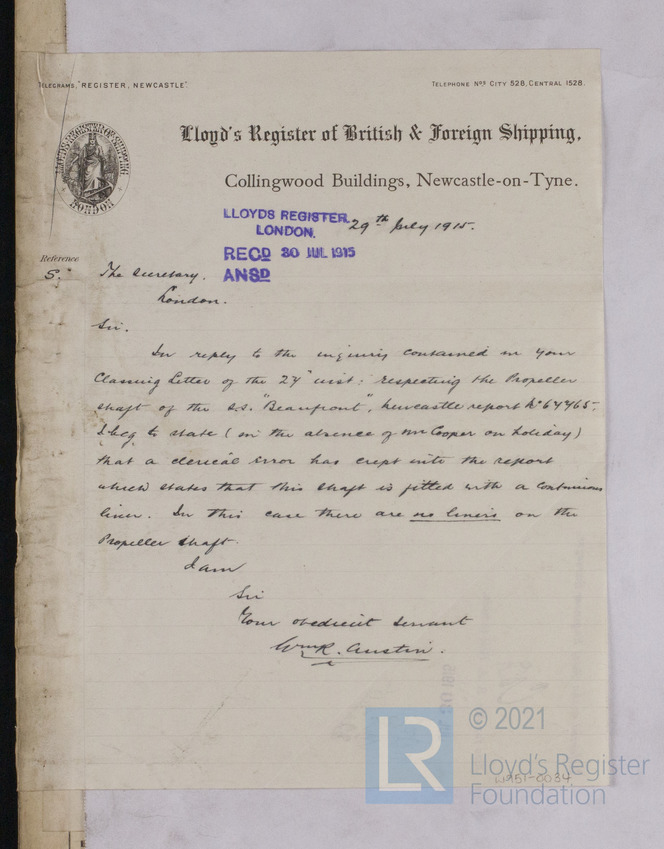 TELEGRAMS, "REGISTER, NEWCASTLE".
TELEPHONE Nos CITY 528, CENTRAL 1528.
LLOYD'S REGISTER OF BRITISH & FOREIGN SHIPPING
LONDON
Lloyd's Register of British & Foreign Shipping,
Collingwood Buildings, Newcastle-on-Tyne.
LLOYDS REGISTER,
LONDON.
29th July 1915.
RECD 30 JUL 1915
ANSD
Reference
S.
The Secretary.
London.
Sir.
In reply to the inquiry contained in your
Classing Letter of the 27th inst: respecting the Propeller
shaft of the s.s. "Beaufront", Newcastle report No 67465,
I beg to state (in the absence of Mr Cooper on holiday)
that a clerical error has crept into the report
which states that this shaft is fitted with a continuous
liner. In this case there are no liners on the
Propeller shaft.
I am
Sir
Your obedient servant
Wm R. Austin.
W951-0034
© 2021
LR
Lloyd's Register
Foundation